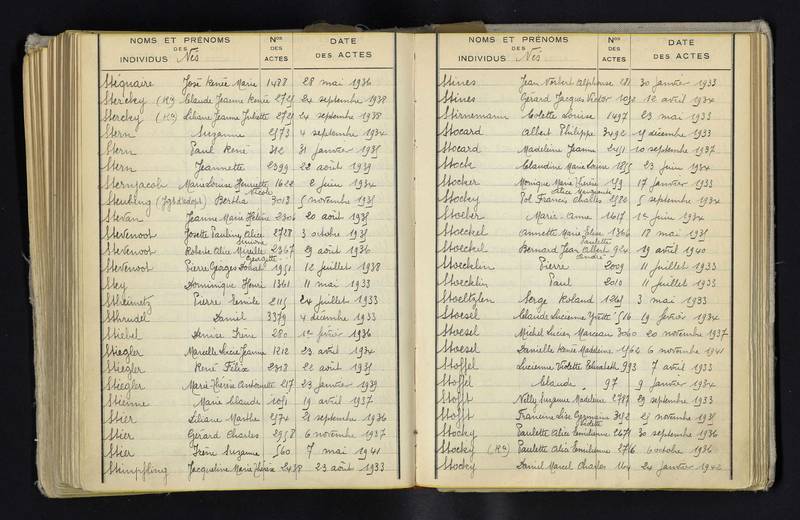 NOMS ET PRÉNOMS DES INDIVIDUS Nés
Nos DES ACTES
DATE DES ACTES
Stéguaire José Renée Marie 1488 28 mai 1936
Sterchy (Ra) Claude Jeanne Renée 2729 24 septembre 1938
Sterchy (Ra) Liliane Jeanne Juliette 2729 24 septembre 1938
Stern Suzanne 2573 4 septembre 1934
Stern Paul René 312 31 janvier 1935
Stern Jeannette 2399 22 août 1939
Sternjacob Marie Louise Henriette Nicole 1622 2 juin 1934
Steubling Bertha 3013 5 novembre 1935
Stevan Jeanne Marie Hélène 2304 20 août 1935
Stevenoot Josette Pauline Alice 2728 3 octobre 1935
Stevenoot Roberte Alice Mireille Simone 2367 29 août 1936
Stevenoot Pierre Georges Georgette 1951 12 juillet 1938
Stey Dominique Henri 1361 11 mai 1933
Stheinetz Pierre Emile 2115 24 juillet 1933
Sthrudel Daniel 3379 4 décembre 1933
Stiebel Denise Irène 280 1er février 1936
Stiegler Marcelle Lucie Jeanne 1212 23 avril 1934
Stiegler René Félix 2318 22 août 1935
Stiegler Marie Thérèse Antoinette 217 23 janvier 1939
Stienne Marie Claude 1051 19 avril 1937
Stier Liliane Marthe 2574 21 septembre 1936
Stier Gérard Charles 2958 6 novembre 1937
Stier Irène Suzanne 560 7 mai 1941
Stimpfling Jacqueline Marie Thérèse 2438 23 août 1933
NOMS ET PRÉNOMS DES INDIVIDUS Nés
Nos DES ACTES
DATE DES ACTES
Stines Jean Norbert Alphonse 281 30 janvier 1933
Stines Gérard Jacques Victor 1030 12 avril 1934
Stirnemann Colette Louise 1497 23 mai 1933
Stocard Albert Philippe 3492 15 décembre 1933
Stocard Madeleine Jeanne 2451 10 septembre 1937
Stock Claudine Marie Louise 1855 23 juin 1934
Stocker Monique Marie Thérèse 179 17 janvier 1933
Stocky Pol Francis Charles 2580 5 septembre 1934
Stoeber Marie-Anne 1617 1er juin 1934
Stoeckel Annette Marie Elise Paulette 1364 18 mai 1935
Stoeckel Bernard Jean Albert André 924 19 avril 1940
Stoecklin Pierre 2009 11 juillet 1933
Stoecklin Paul 2010 11 juillet 1933
Stoeltzlen Serge Roland 1245 3 mai 1933
Stoesel Claude Lucienne Yvette 516 19 février 1934
Stoesel Michel Lucien Marceau 3060 20 novembre 1937
Stoesel Danielle Renée Madeleine 1562 6 novembre 1941
Stoffel Lucienne Violette Elisabeth 993 7 avril 1933
Stoffel Claude 97 9 janvier 1934
Stofft Nelly Suzanne Madeleine 2787 29 septembre 1933
Stofft Francine Lise Germaine Odette 3212 25 novembre 1935
Stocky Paulette Alice Emilienne 2671 30 septembre 1936
Stocky (Ra) Paulette Alice Emilienne 2716 6 octobre 1936
Stocky Daniel Marcel Charles 164 24 janvier 1942